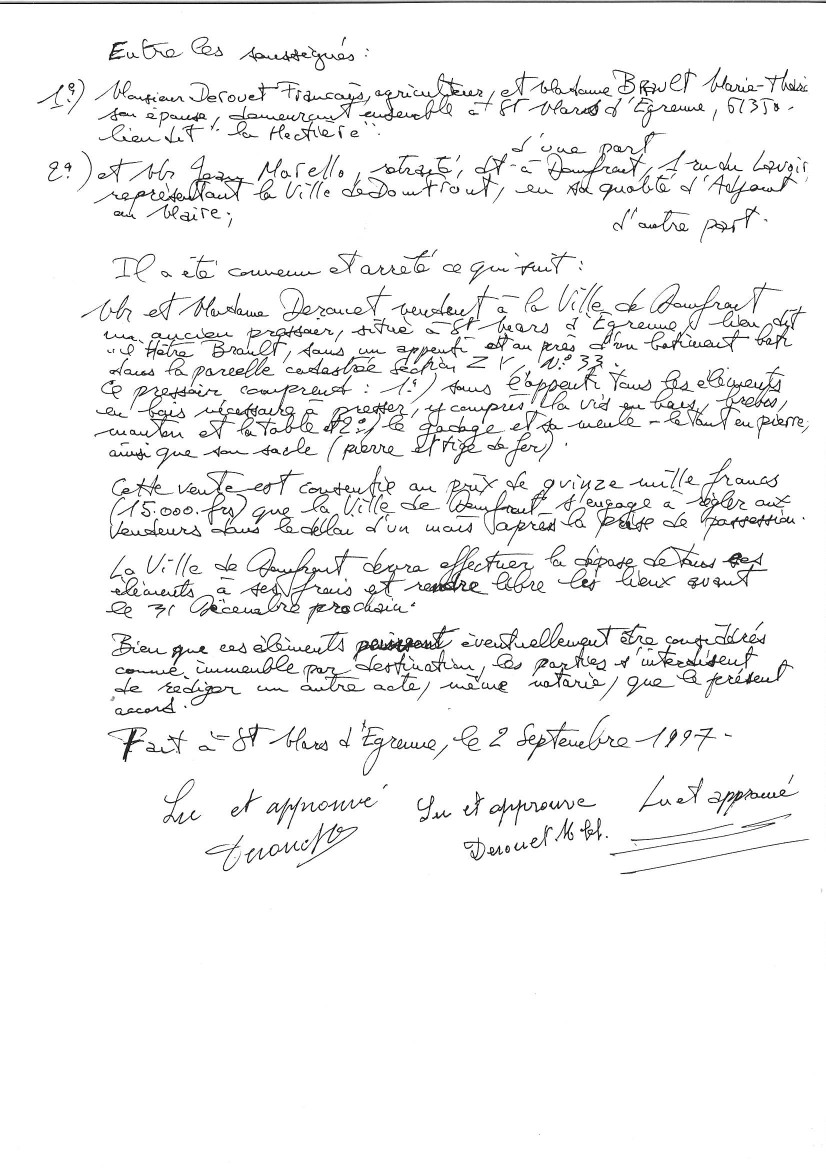 Entre les soussignés :
1º) Monsieur Derouet François, agriculteur, et Madame BRAULT Marie-Thérè
son épouse, demeurant ensemble à St Mars d'Egrenne, 61350.
lieu dit "la Hectière".
d'une part
2º) et Mr Jean Marello, retraité, dt à Domfront, 1 rue du Lavoir,
représentant la Ville de Domfront, en sa qualité d'Adjoint
au Maire ;
d'autre part.
Il a été convenu et arrêté ce qui suit :
Mr et Madame Derouet vendent à la Ville de Domfront
un ancien pressoir, situé à St Mars d'Egrenne, lieu dit
Hôtre Brault, sous un appenti et au près d'un batiment bati
dans la parcelle cadastrée Section Z V Nº 33.
Ce pressoir comprend : 1º) sous l'appenti tous les éléments
en bois nécessaire à presser, y compris la vis en bois, brebis,
mouton et la table et 2º) le gadage et sa meule - le tout en pierre,
ainsi que son socle (pierre et tige de fer).
Cette vente est consentie au prix de quinze mille francs
(15.000. frs) que la Ville de Domfront s'engage à règler aux
vendeurs dans le délai d'un mois après la prise de possession.
La Ville de Domfront devra effectuer la dépose de tous ces
éléments à ses frais et rendre libre les lieux avant
le 31 Décembre prochain.
Bien que ces éléments puissent éventuellement être considérés
comme immeuble par destination, les parties s'interdisent
de rédiger un autre acte, même notarié, que le présent
accord.
Fait à St Mars d'Egrenne, le 2 Septembre 1997 -
Lu et approuvé Lu et approuve Lu et approuvé
Derouet Derouet M